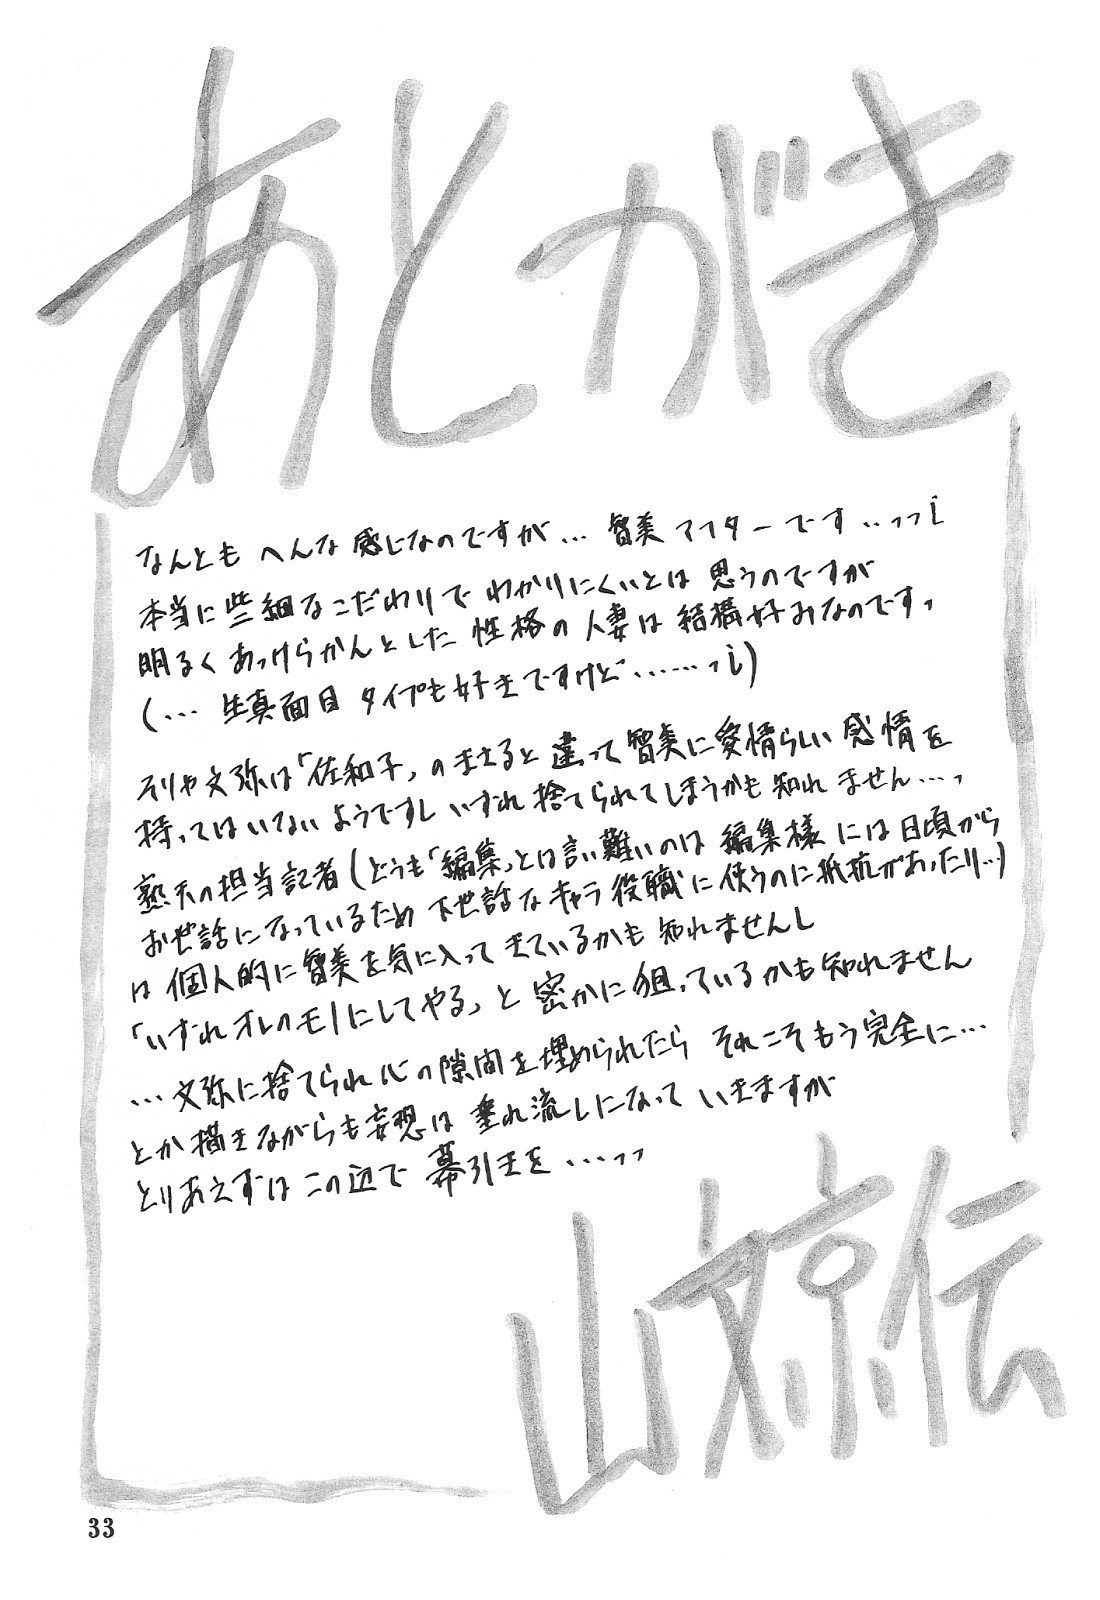 あとがき
なんとも へんな 感じなのですが… 智美アフターです‥っっ；
本当に些細なこだわりで わかりにくいとは 思うのですが
明るく あっけらかんとした 性格の 人妻は 結構好みなのです。
(… 生真面目 タイプも好きですけど……っ；)
そりゃ文弥は「佐和子」のまさると 違って 智美に愛情らしい 感情を
持ってはいないようですし いずれ 捨てられてしまうかも 知れません…。
の担当記者(どうも「編集」とは言い難いのは 編集様 には 日頃から
お世話になっているため 下世話な キャラ 役職に 使うのに 抵抗があったり…)
は 個人的に 智美を気に入って きているかも 知れませんし
「いずれ オレのモノにしてやる」と 密かに 狙っているかも 知れません
… 文弥に捨てられ 心の隙間を埋められたら それこそもう完全に…
とか描きながらも妄想は 垂れ流しになって いきますが
とりあえずは この辺で 幕引きを …っっ
山文京伝
33